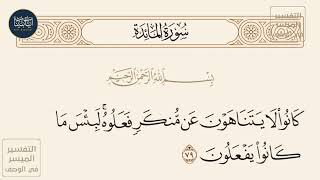 سُورَةُ المَائِدَة
بِسْمِ اللَّهِ الرَّحْمَٰنِ الرَّحِيمِ
كَانُوا۟ لَا يَتَنَاهَوْنَ عَن مُّنكَرٍ فَعَلُوهُ ۚ لَبِئْسَ مَا
كَانُوا۟ يَفْعَلُونَ ٧٩
التفسير
الميسر
في الوصف
التفسير
الميسر